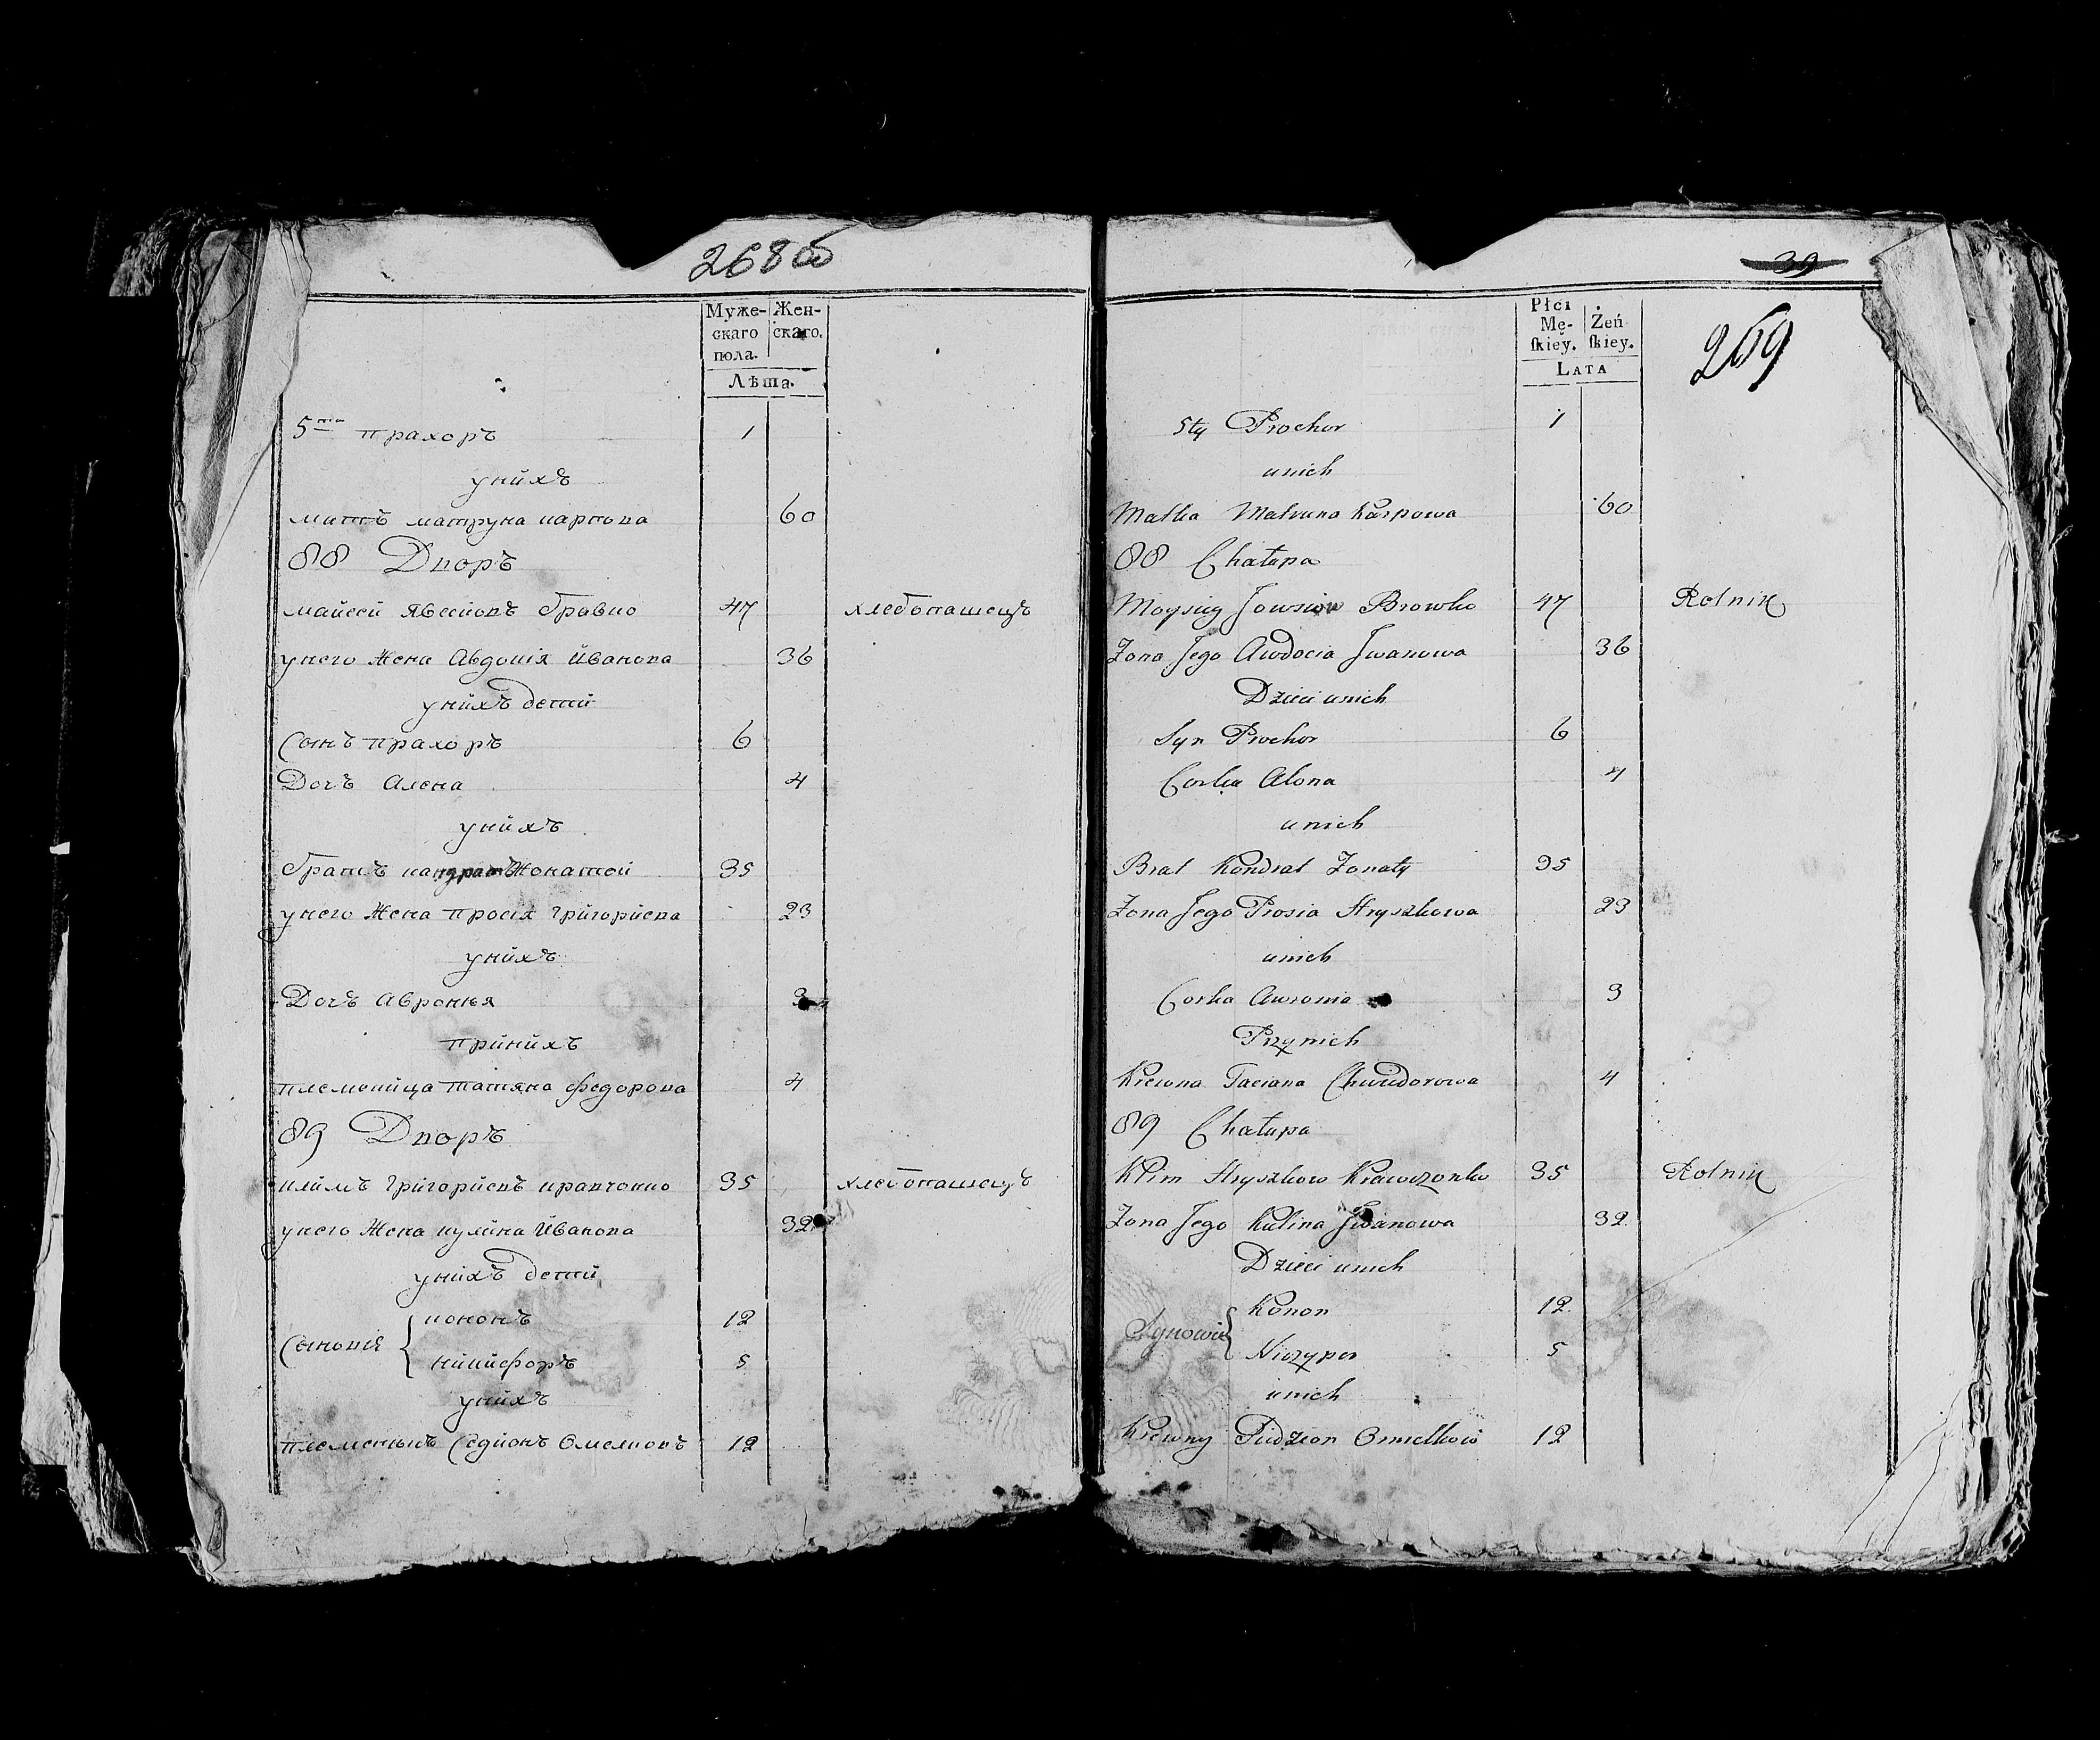 268 об
Муже-
скаго
пола.
Жен-
скаго.
Лѣта.
5ти прахоръ 1
унйхъ
матъ матруна карпова 60
88 Дворъ
майсей Явсейовъ бравко 47 хлебопашецъ
унего жена Авдокія Йванова 36
унйхъ детй
Сынъ прахоръ 6
Дочъ Алена 4
унйхъ
братъ кандратъ жонатой 35
унего жена прося Григорйева 23
унйхъ
Дочъ Авронья 3
прйнйхъ
племенйца татяна федорова 4
89 Дворъ
клймъ Григорйевъ кравчонко 35 хлебопашецъ
унего жена кулйна Йванова 32
унйхъ детй
Сыновія { кононъ 12
нйкйфоръ 5
унйхъ
племеныкъ Седйонъ Омелковъ 12
39
269
Płci
Mę-
skiey.
Żeń
skiey.
LATA
5ty Prochor 1
unich
Matka Matruna Karpowa 60
88 Chałupa
Moysiey Jowsiow Browko 47 Rolnik
Zona Jego Awdocia Jwanowa 36
Dzieci unich
Syn Prochor 6
Corka Alona 4
unich
Brat Kondrat Zonaty 35
Zona Jego Prosia Hryszkowa 23
unich
Corka Awronia 3
Przynich
Krewna Taciana Chwidorowa 4
89 Chałupa
Klim Hryszkow Krawczonko 35 Rolnik
Zona Jego Kulina Jwanowa 32
Dzieci unich
Synowie { Konon 12
Niczypor 5
unich
Krewny Pidzion Omielkow 12